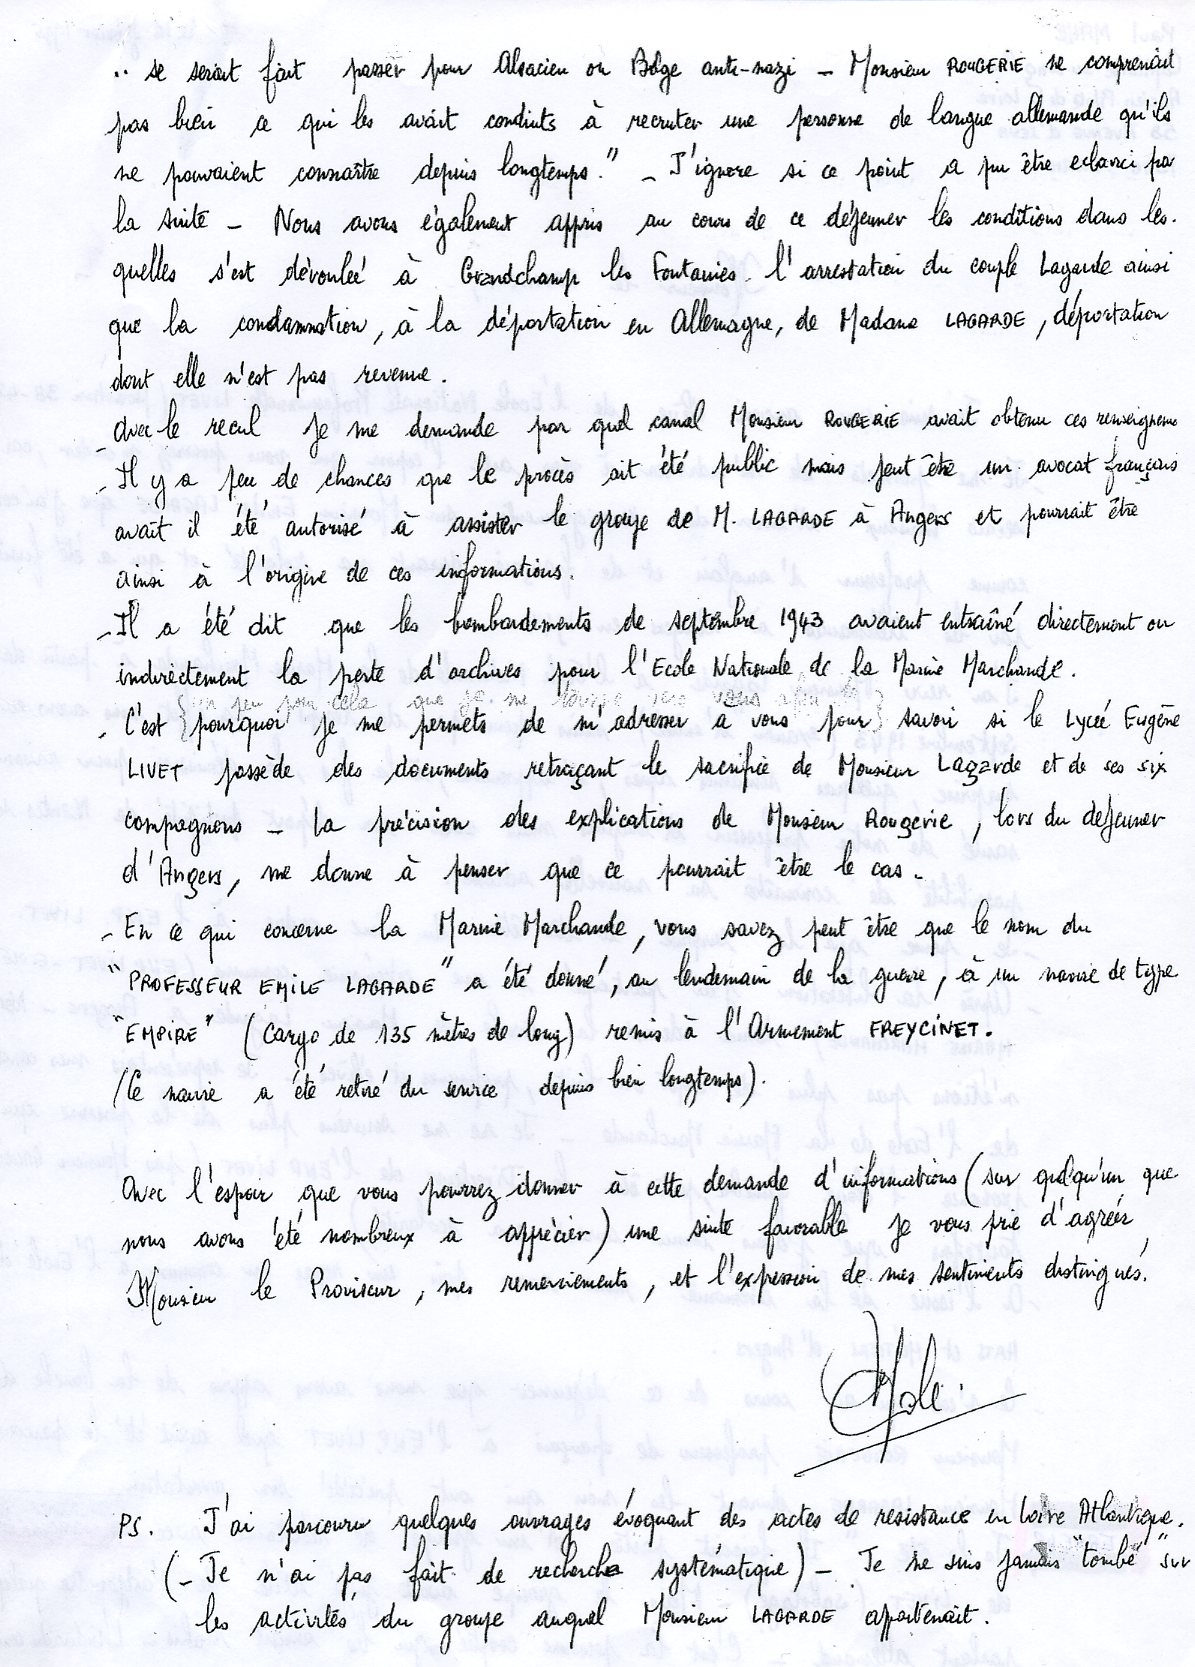 .. se serait fait passer pour Alsacien ou Belge anti-nazi _ Monsieur ROUGERIE ne comprenait
pas bien ce qui les avait conduits à recruter une personne de langue allemande qu'ils
ne pouvaient connaître depuis longtemps." _ J'ignore si ce point a pu être eclairci par
la suite _ Nous avons également appris au cours de ce déjeuner les conditions dans les.
quelles s'est déroulée à Grandchamp les Fontaines l'arrestation du couple Lagarde ainsi
que la condamnation, à la déportation en Allemagne, de Madame LAGARDE, déportation
dont elle n'est pas revenue.
_ Avec le recul je me demande par quel canal Monsieur ROUGERIE avait obtenu ces renseignements
_ Il y a peu de chances que le procès ait été public mais peut être un avocat français
avait il été autorisé à assister le groupe de M. LAGARDE à Angers et pourrait être
ainsi à l'origine de ces informations.
_ Il a été dit que les bombardements de septembre 1943 avaient entraîné directement ou
indirectement la perte d'archives pour l'Ecole Nationale de la Marine Marchande.
un peu pour cela que je me tourne vers vous afin de
_ C'est {pourquoi je me permets de m'adresser à vous pour} savoir si le Lycée Eugène
LIVET possède des documents retraçant le sacrifice de Monsieur Lagarde et de ses six
compagnons _ La précision des explications de Monsieur Rougerie, lors du déjeuner
d'Angers, me donne à penser que ce pourrait être le cas _
_ En ce qui concerne la Marine Marchande, vous savez peut être que le nom du
"PROFESSEUR EMILE LAGARDE" a été donné, au lendemain de la guerre, à un navire de type
"EMPIRE" (Cargo de 135 mètres de long) remis à l'Armement FREYCINET.
(Ce navire a été retiré du service depuis bien longtemps).
Avec l'espoir que vous pourrez donner à cette demande d'informations (sur quelqu'un que
nous avons été nombreux à apprécier) une suite favorable je vous prie d'agréer,
Monsieur le Proviseur, mes remerciements, et l'expression de mes sentiments distingués.
PS. J'ai parcouru quelques ouvrages évoquant des actes de resistance en Loire Atlantique.
(_ Je n'ai pas fait de recherche systématique) _ Je ne suis jamais "tombé" sur
les activités du groupe auquel Monsieur LAGARDE appartenait.